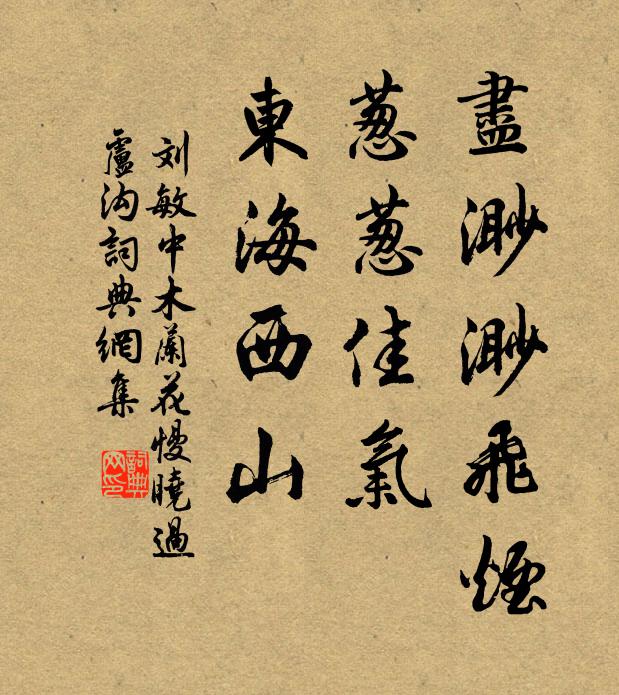 盡渺渺飛煙
葱葱佳氣
東海西山
刘敏中木蘭花慢曉過
盧沟詞典網集
詞典网印